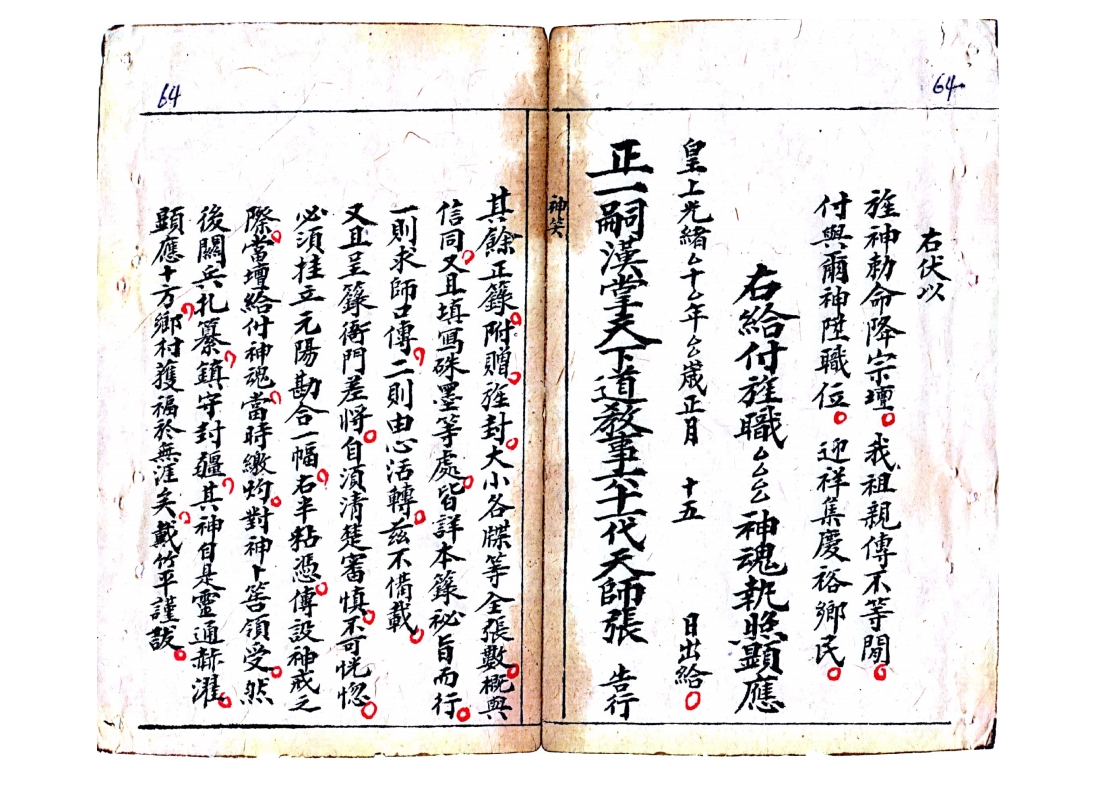 64
右伏以
旌神勅命降宗壇。我祖親傳不等閒。
付與爾神陞職位。迎祥集慶裕鄉民。
右給付旌職厶厶厶神魂執照顯應
皇上光緒厶十厶年厶歲正月 十五 日出給。
正一嗣漢掌天下道教事六十一代天師張 告行
神笑
64
其餘正籙。附贈。旌封。大小各牒等全張數。概與
信同。又且填寫硃墨等處。皆詳本籙祕旨而行。
一則求師口傳。二則由心活轉。茲不備載。
又且呈籙衙門差將。自須清楚審慎。不可恍惚。
必須挂立元陽勘合一幅。右半粘憑。傳設神戒之
際。當壇給付神魂。當時繳灼。對神卜筶領受。然
後關兵扎纂。鎮守封疆。其神自是靈通赫濯。
顯應十方。鄉村獲福於無涯矣。戴竹平謹敲。